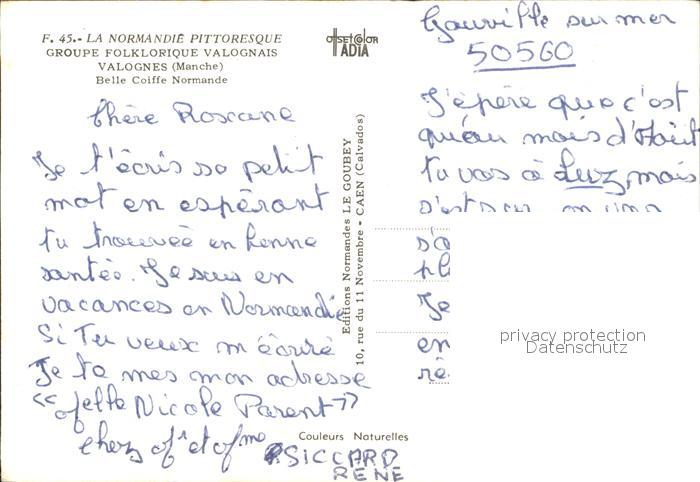 F. 45.- LA NORMANDIE PITTORESQUE
GROUPE FOLKLORIQUE VALOGNAIS
VALOGNES (Manche)
Belle Coiffe Normande
OFFSETCOLOR
IADIA
Chère Roscane
Je t'écris so petit
mot en espérant
tu trouveé en henne
santée. Je suis en
vacances en Normandie
Si Tu veux m'écriré
Je te mes mon adresse
"Melle Nicole Parent"
chez Mr et Mme SICCARD
RENE
Couleurs Naturelles
Editions Normandes LE GOUBEY
10, rue du 11 Novembre - CAEN (Calvados)
Gouville sur mer
50560
J'épère que c'est
qu'au mois d'Août
tu vas à Luz, mais
s'o
pl
Je
en
ré
privacy protection
Datenschutz